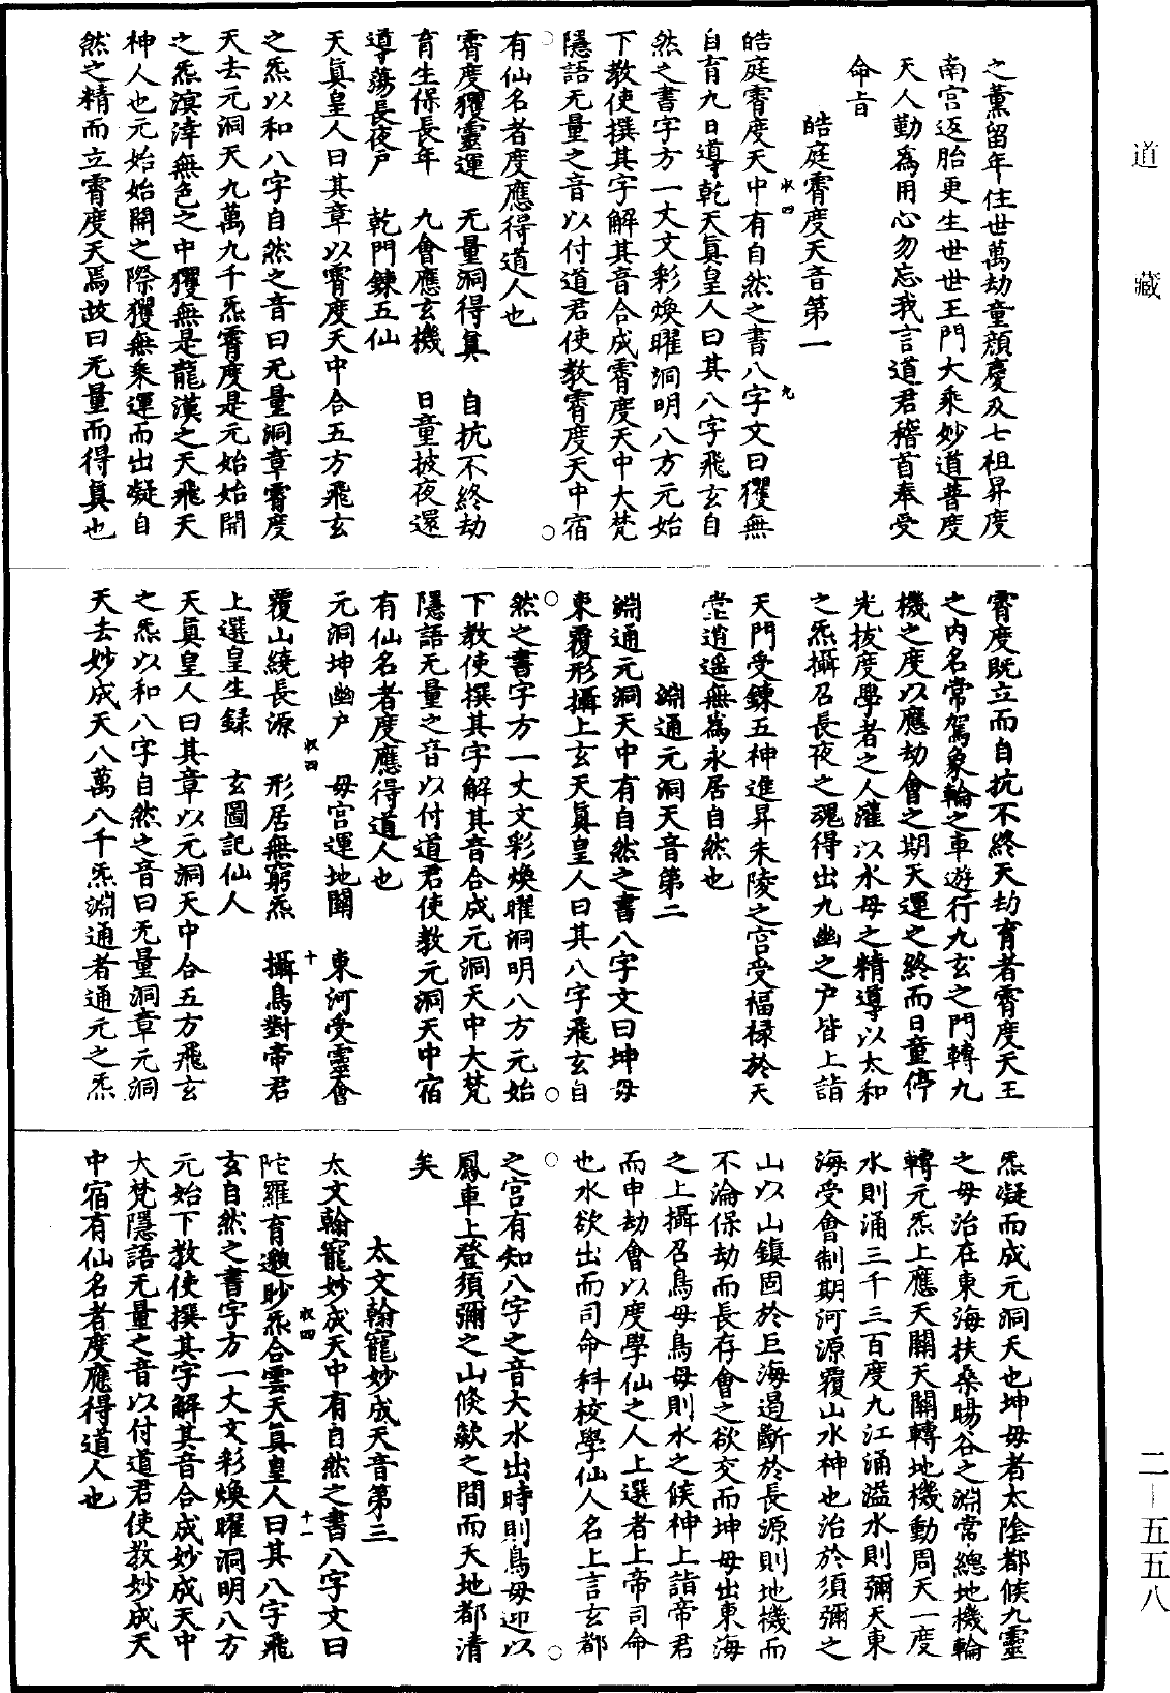 道藏
之薰留年住世萬劫童顏慶及七祖昇度
南宮返胎更生世世王門大乘妙道普度
天人勤為用心勿忘我言道君稽首奉受
命旨
皓庭霄度天音第一
皓庭霄度天中有自然之書八字文曰玃無
自育九日導乾天真皇人曰其八字飛玄自
然之書字方一丈文彩煥曜洞明八方元始
下教使撰其字解其音合成霄度天中大梵
隱語无量之音以付道君使教霄度天中宿
有仙名者度應得道人也
霄度玃靈運　无量洞得真　自抗不終劫
育生保長年　九會應玄機　日童披夜還
導蕩長夜戶　乾門鍊五仙
天真皇人曰其章以霄度天中合五方飛玄
之炁以和八字自然之音曰无量洞章霄度
天去元洞天九萬九千炁霄度是元始始開
之炁溟涬無色之中玃無是龍漢之天飛天
神人也元始始開之際玃無乘運而出凝自
然之精而立霄度天焉故曰无量而得真也
霄度既立而自抗不終天劫育者霄度天王
之內名常駕象輪之車遊行九玄之門轉九
機之度以應劫會之期天運之終而日童停
光拔度學者之人灌以水母之精導以太和
之炁攝召長夜之魂得出九幽之戶皆上詣
天門受鍊五神進昇朱陵之宮受福祿於天
堂逍遥無為永居自然也
淵通元洞天音第二
淵通元洞天中有自然之書八字文曰坤母
東覆形攝上玄天真皇人曰其八字飛玄自
然之書字方一丈文彩煥曜洞明八方元始
下教使撰其字解其音合成元洞天中大梵
隱語无量之音以付道君使教元洞天中宿
有仙名者度應得道人也
元洞坤幽戶　母宮運地關　東河受靈會
覆山繞長源　形居無窮炁　攝鳥對帝君
上選皇生録　玄圖記仙人
天真皇人曰其章以元洞天中合五方飛玄
之炁以和八字自然之音曰无量洞章元洞
天去妙成天八萬八千炁淵通者通元之炁
炁凝而成元洞天也坤母者太陰都候九靈
之母治在東海扶桑暘谷之淵常總地機輪
轉元炁上應天關天關轉地機動周天一度
水則涌三千三百度九江涌溢水則彌天東
海受會制期河源覆山水神也治於須彌之
山以山鎮固於巨海遏斷於長源則地機而
不淪保劫而長存會之欲交而坤母出東海
之上攝召鳥母鳥母則水之候神上詣帝君
而申劫會以度學仙之人上選者上帝司命
也水欲出而司命科校學仙人名上言玄都
之宮有知八字之音大水出時則鳥母迎以
鳳車上登須彌之山倏歘之間而天地都清
矣
太文翰寵妙成天音第三
太文翰寵妙成天中有自然之書八字文曰
陀羅育邈眇炁合雲天真皇人曰其八字飛
玄自然之書字方一丈文彩煥曜洞明八方
元始下教使撰其字解其音合成妙成天中
大梵隱語无量之音以付道君使教妙成天
中宿有仙名者度應得道人也
二—五五八